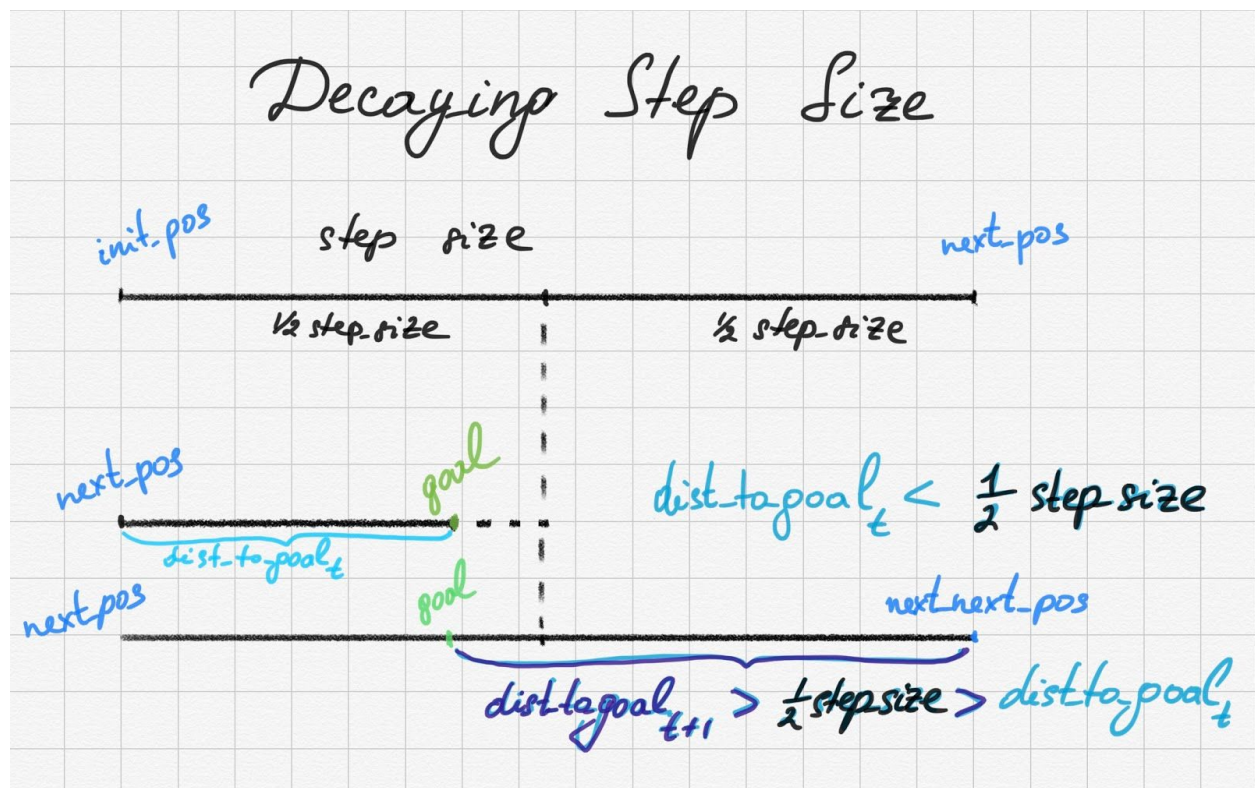 Decaying Step Size
init_pos step size next_pos
1/2 step_size 1/2 step_size
next_pos goal
dist_to_goal_t < 1/2 step size
dist_to_goal_t
next_pos goal next_next_pos
dist to goal_t+1 > 1/2 step size > dist to_goal_t